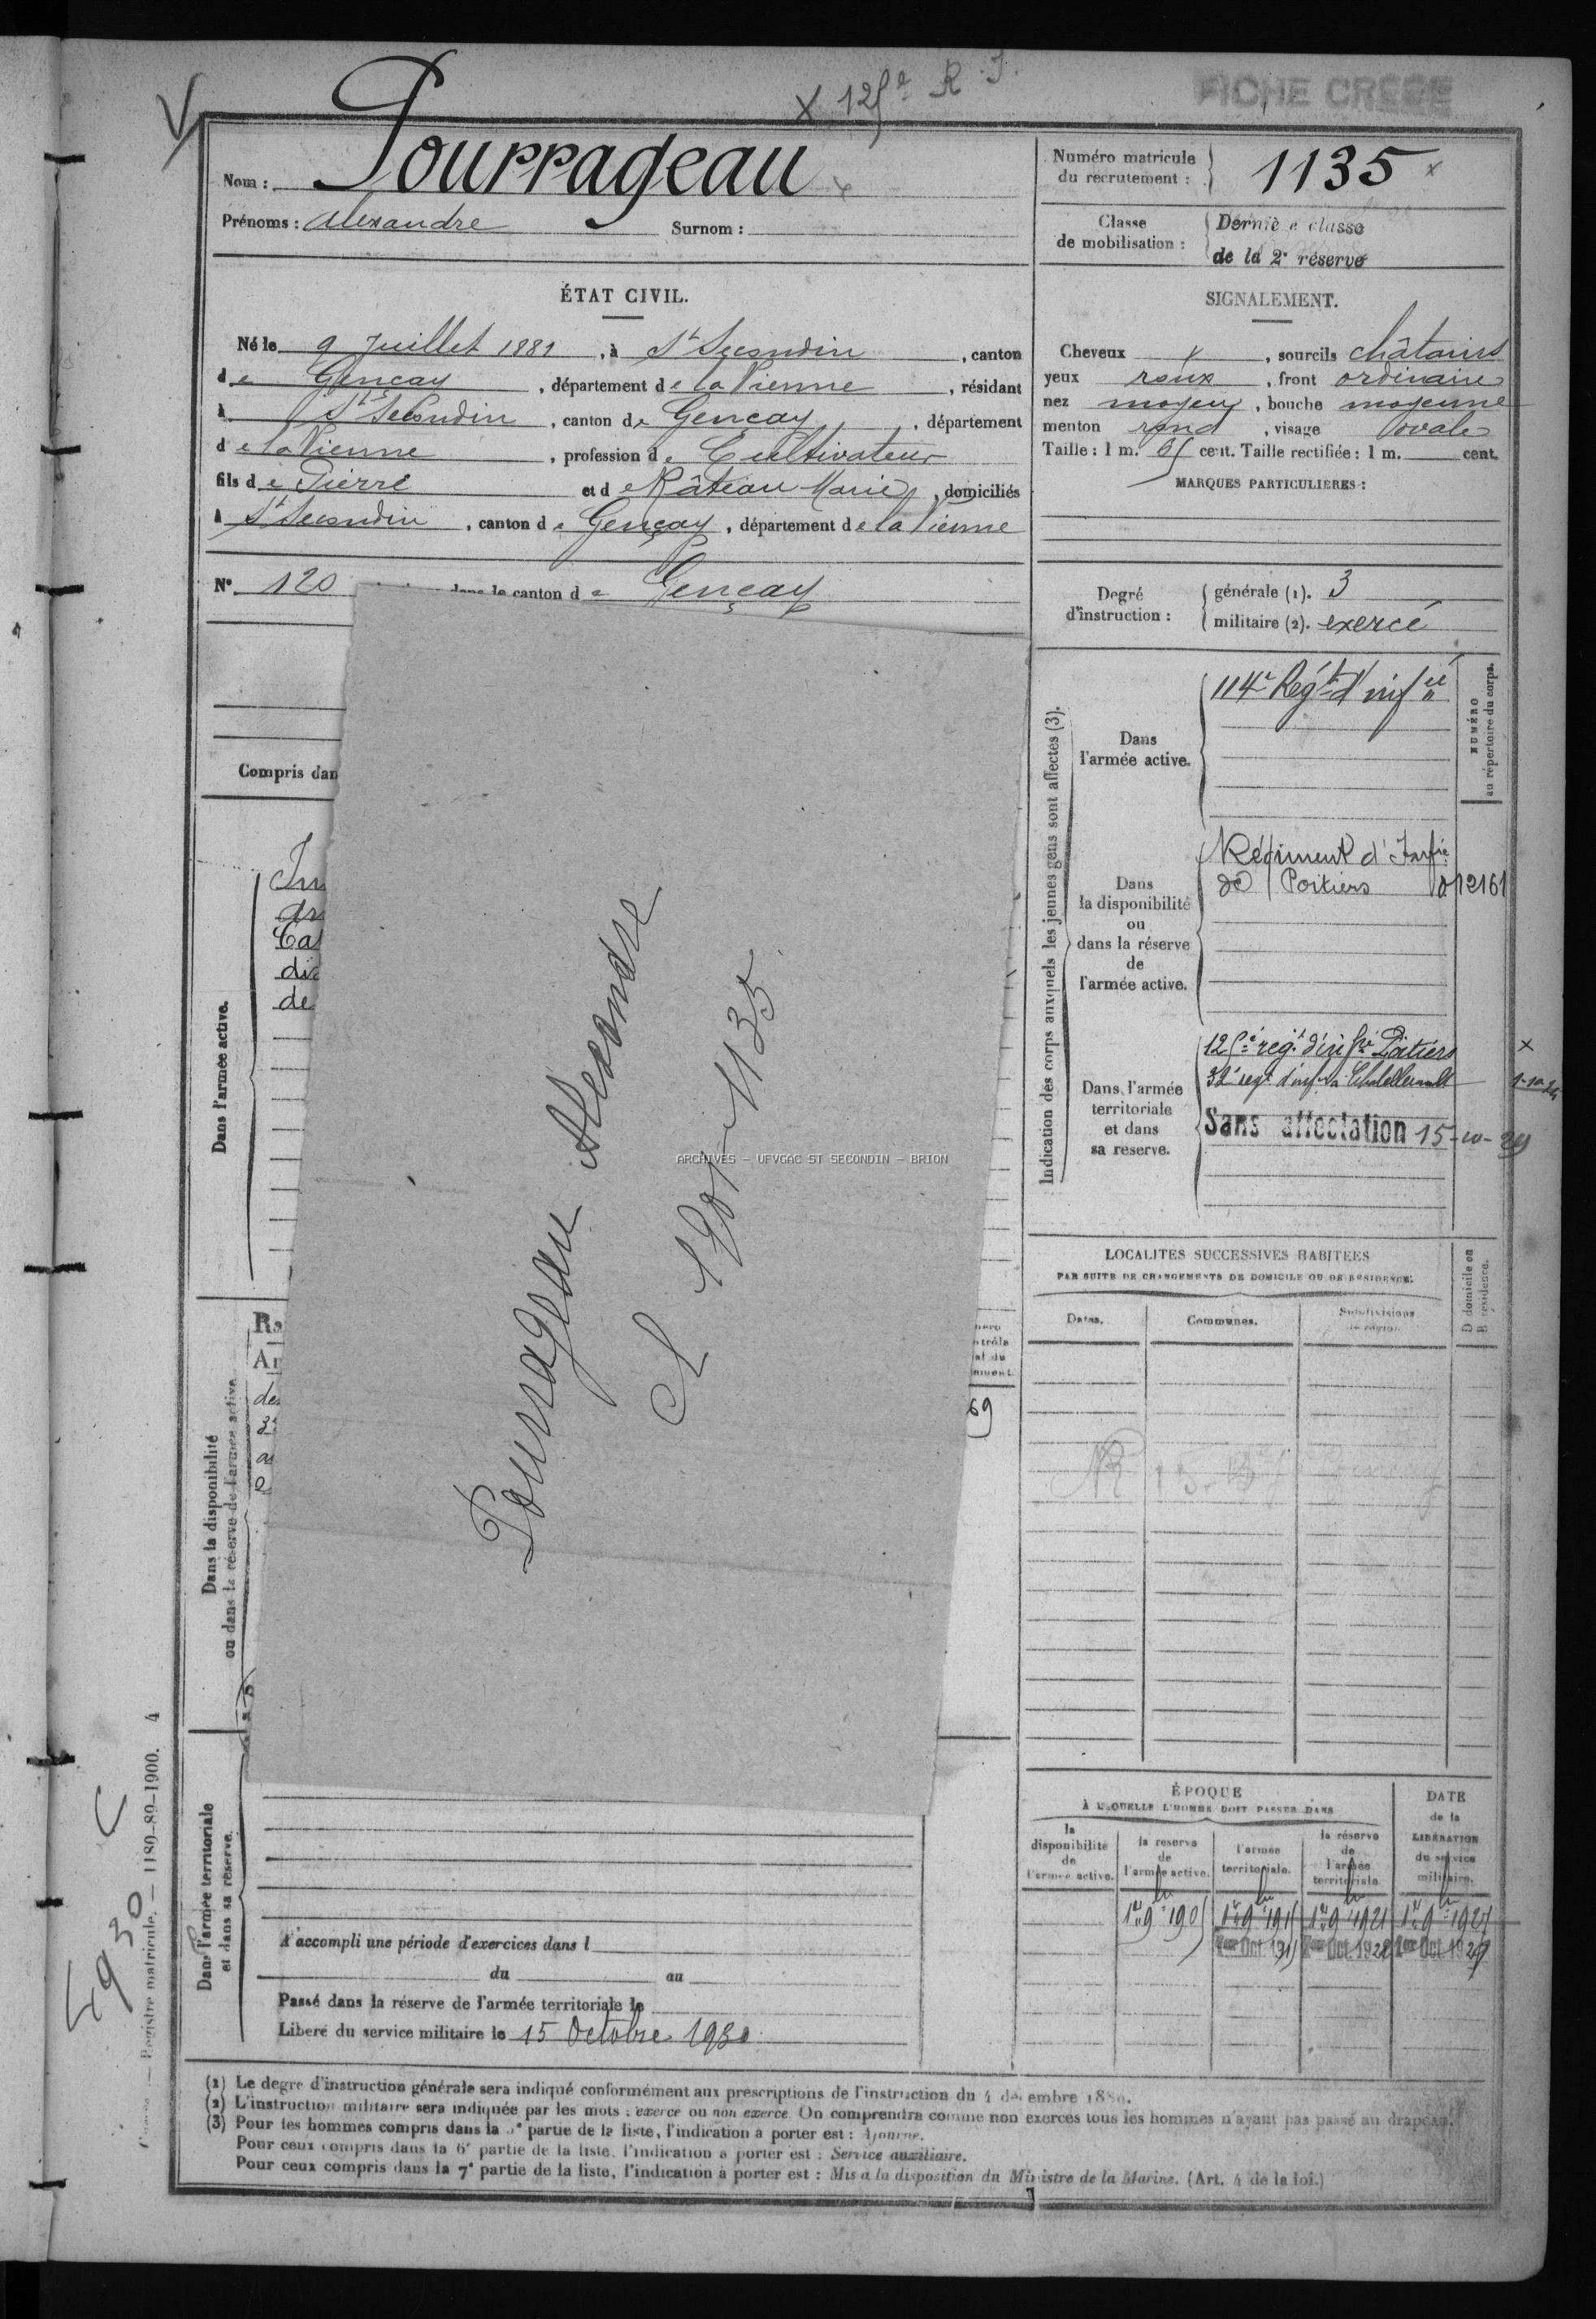 X 125e R. I.
FICHE CRÉÉE
Nom : Pourrageau
Prénoms : Alexandre Surnom :
Numéro matricule du recrutement : 1135
Classe de mobilisation : Dernière classe de la 2e réserve
ÉTAT CIVIL.
Né le 9 Juillet 1881, à St Secondin, canton
de Gençay, département de la Vienne, résidant
à St Secondin, canton de Gençay, département
de la Vienne, profession de Cultivateur
fils de Pierre et de Râteau Marie, domiciliés
à St Secondin, canton de Gençay, département de la Vienne
N° 120 dans le canton de Gençay
SIGNALEMENT.
Cheveux x, sourcils châtains
yeux roux, front ordinaire
nez moyen, bouche moyenne
menton rond, visage ovale
Taille : 1 m. 65 cent. Taille rectifiée : 1 m. cent.
MARQUES PARTICULIÈRES :
Degré d'instruction :
générale (1). 3
militaire (2). exercé
Compris dan
Dans l'armée active.
Cas
de
Pourrageau Alexandre
1135
ARCHIVES - UFVGAC ST SECONDIN - BRION
Indication des corps auxquels les jeunes gens sont affectés (3).
NUMÉRO au répertoire du corps.
Dans l'armée active.
114e Régt d'infie
Dans la disponibilité ou dans la réserve de l'armée active.
Régiment d'Infie
de Poitiers 012161
Dans l'armée territoriale et dans sa réserve.
125e régt d'infie Poitiers x
32e régt d'infie Chatellerault
Sans affectation 15-10-29
LOCALITÉS SUCCESSIVES HABITÉES
PAR SUITE DE CHANGEMENTS DE DOMICILE OU DE RÉSIDENCE.
Dates.
Communes.
Subdivisions de région.
D domicile ou R résidence.
69
Dans la disponibilité
ou dans la réserve de l'armée active
Dans l'armée territoriale
et dans sa réserve.
A accompli une période d'exercices dans l
du au
Passé dans la réserve de l'armée territoriale le
Libéré du service militaire le 15 Octobre 1930
ÉPOQUE
À LAQUELLE L'HOMME DOIT PASSER DANS
la disponibilité de l'armée active.
la réserve de l'armée active.
l'armée territoriale.
la réserve de l'armée territoriale
DATE de la LIBÉRATION du service militaire.
Registre matricule. — 1180-89-1900. 4
(1) Le degré d'instruction générale sera indiqué conformément aux prescriptions de l'instruction du 4 décembre 1889.
(2) L'instruction militaire sera indiquée par les mots : exercé ou non exercé. On comprendra comme non exercés tous les hommes n'ayant pas passé au drapeau.
(3) Pour les hommes compris dans la 5e partie de la liste, l'indication à porter est : Ajourné.
Pour ceux compris dans la 6e partie de la liste, l'indication à porter est : Service auxiliaire.
Pour ceux compris dans la 7e partie de la liste, l'indication à porter est : Mis à la disposition du Ministre de la Marine. (Art. 4 de la loi.)